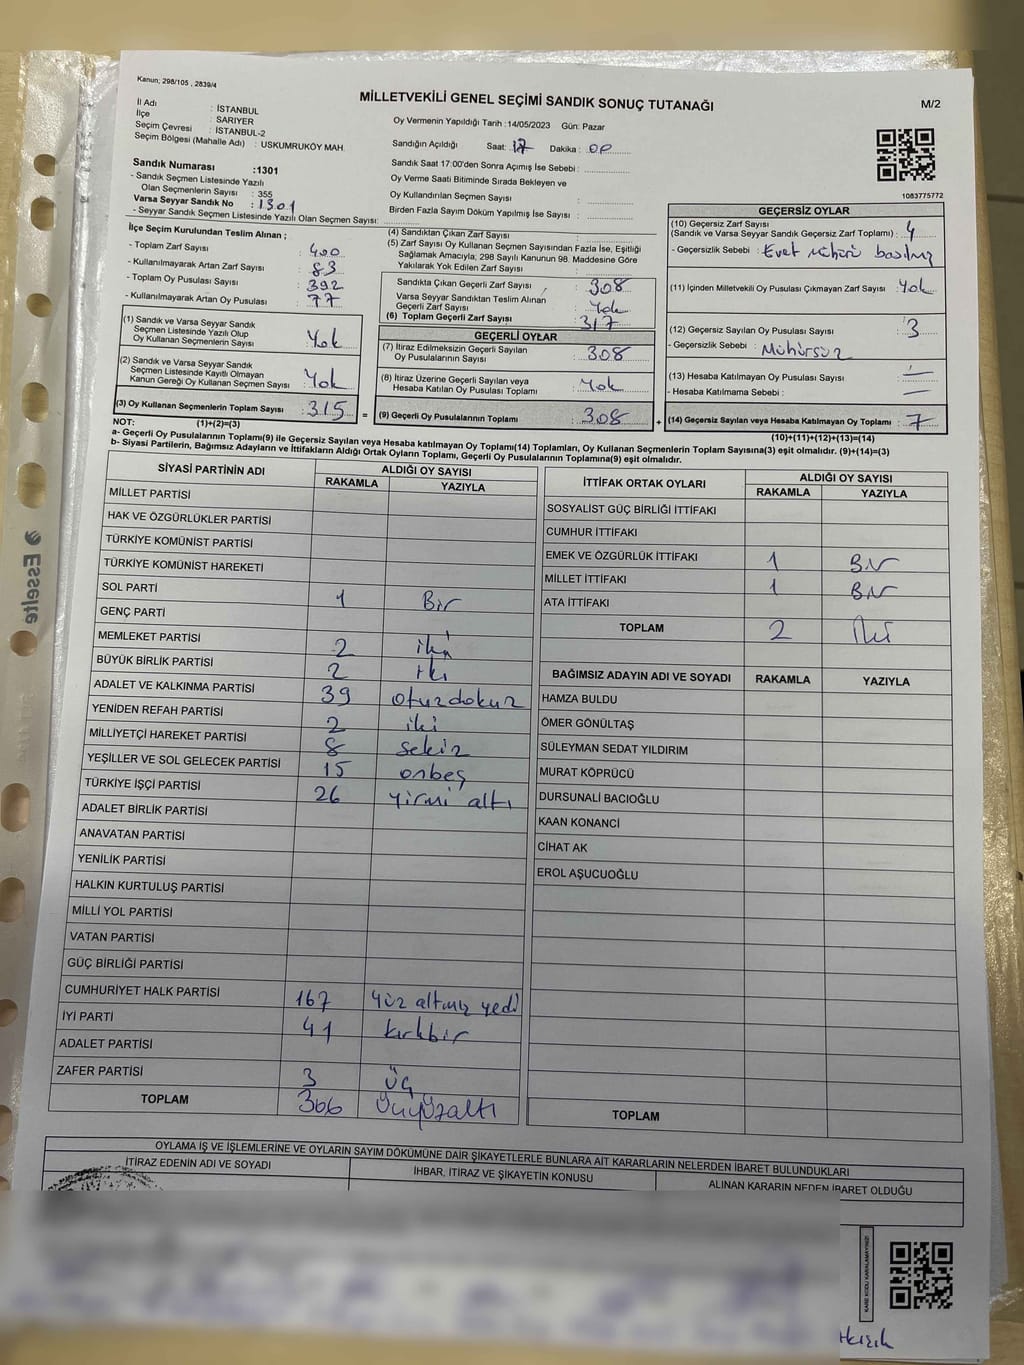 Kanun; 298/105 , 2839/4
MİLLETVEKİLİ GENEL SEÇİMİ SANDIK SONUÇ TUTANAĞI
M/2
İl Adı : İSTANBUL
İlçe : SARIYER
Seçim Çevresi : İSTANBUL-2
Seçim Bölgesi (Mahalle Adı) : USKUMRUKÖY MAH.
Oy Vermenin Yapıldığı Tarih :14/05/2023 Gün: Pazar
Sandığın Açıldığı Saat: 17 Dakika:
Sandık Saat 17:00'den Sonra Açımış İse Sebebi :
Oy Verme Saati Bitiminde Sırada Bekleyen ve
Oy Kullandırılan Seçmen Sayısı :
Birden Fazla Sayım Döküm Yapılmış İse Sayısı :
1083775772
Sandık Numarası :1301
- Sandık Seçmen Listesinde Yazılı
Olan Seçmenlerin Sayısı : 355
Varsa Seyyar Sandık No : 1301
- Seyyar Sandık Seçmen Listesinde Yazılı Olan Seçmen Sayısı:
İlçe Seçim Kurulundan Teslim Alınan ;
- Toplam Zarf Sayısı : 400
- Kullanılmayarak Artan Zarf Sayısı : 83
- Toplam Oy Pusulası Sayısı : 392
- Kullanılmayarak Artan Oy Pusulası : 77
(1) Sandık ve Varsa Seyyar Sandık
Seçmen Listesinde Yazılı Olup
Oy Kullanan Seçmenlerin Sayısı : Yok
(2) Sandık ve Varsa Seyyar Sandık
Seçmen Listesinde Kayıtlı Olmayan
Kanun Gereği Oy Kullanan Seçmen Sayısı : Yok
(3) Oy Kullanan Seçmenlerin Toplam Sayısı : 315 =
(4) Sandıktan Çıkan Zarf Sayısı :
(5) Zarf Sayısı Oy Kullanan Seçmen Sayısından Fazla İse, Eşitliği
Sağlamak Amacıyla; 298 Sayılı Kanunun 98. Maddesine Göre
Yakılarak Yok Edilen Zarf Sayısı :
Sandıkta Çıkan Geçerli Zarf Sayısı : 308
Varsa Seyyar Sandıktan Teslim Alınan
Geçerli Zarf Sayısı : Yok
(6) Toplam Geçerli Zarf Sayısı : 317
GEÇERLİ OYLAR
(7) İtiraz Edilmeksizin Geçerli Sayılan
Oy Pusulalarının Sayısı : 308
(8) İtiraz Üzerine Geçerli Sayılan veya
Hesaba Katılan Oy Pusulası Toplamı : Yok
(9) Geçerli Oy Pusulalarının Toplamı : 308 +
GEÇERSİZ OYLAR
(10) Geçersiz Zarf Sayısı
(Sandık ve Varsa Seyyar Sandık Geçersiz Zarf Toplamı) : 4
- Geçersizlik Sebebi : Evet mührü basılmış
(11) İçinden Milletvekili Oy Pusulası Çıkmayan Zarf Sayısı : Yok
(12) Geçersiz Sayılan Oy Pusulası Sayısı : 3
- Geçersizlik Sebebi : Mühürsüz
(13) Hesaba Katılmayan Oy Pusulası Sayısı : —
- Hesaba Katılmama Sebebi : —
(14) Geçersiz Sayılan veya Hesaba Katılmayan Oy Toplamı : 7
NOT: (1)+(2)=(3)
(10)+(11)+(12)+(13)=(14)
a- Geçerli Oy Pusulalarının Toplamı(9) ile Geçersiz Sayılan veya Hesaba katılmayan Oy Toplamı(14) Toplamları, Oy Kullanan Seçmenlerin Toplam Sayısına(3) eşit olmalıdır. (9)+(14)=(3)
b- Siyasi Partilerin, Bağımsız Adayların ve İttifakların Aldığı Ortak Oyların Toplamı, Geçerli Oy Pusulalarının Toplamına(9) eşit olmalıdır.
SİYASİ PARTİNİN ADI ALDIĞI OY SAYISI
RAKAMLA YAZIYLA
MİLLET PARTİSİ
HAK VE ÖZGÜRLÜKLER PARTİSİ
TÜRKİYE KOMÜNİST PARTİSİ
TÜRKİYE KOMÜNİST HAREKETİ
SOL PARTİ 1 Bir
GENÇ PARTİ
MEMLEKET PARTİSİ 2 iki
BÜYÜK BİRLİK PARTİSİ 2 iki
ADALET VE KALKINMA PARTİSİ 39 otuzdokuz
YENİDEN REFAH PARTİSİ 2 iki
MİLLİYETÇİ HAREKET PARTİSİ 8 sekiz
YEŞİLLER VE SOL GELECEK PARTİSİ 15 onbeş
TÜRKİYE İŞÇİ PARTİSİ 26 yirmi altı
ADALET BİRLİK PARTİSİ
ANAVATAN PARTİSİ
YENİLİK PARTİSİ
HALKIN KURTULUŞ PARTİSİ
MİLLİ YOL PARTİSİ
VATAN PARTİSİ
GÜÇ BİRLİĞİ PARTİSİ
CUMHURİYET HALK PARTİSİ 167 yüz altmış yedi
İYİ PARTİ 41 kırkbir
ADALET PARTİSİ
ZAFER PARTİSİ 3 üç
TOPLAM 306 üçyüzaltı
İTTİFAK ORTAK OYLARI ALDIĞI OY SAYISI
RAKAMLA YAZIYLA
SOSYALİST GÜÇ BİRLİĞİ İTTİFAKI
CUMHUR İTTİFAKI
EMEK VE ÖZGÜRLÜK İTTİFAKI 1 Bir
MİLLET İTTİFAKI 1 Bir
ATA İTTİFAKI
TOPLAM 2 İki
BAĞIMSIZ ADAYIN ADI VE SOYADI RAKAMLA YAZIYLA
HAMZA BULDU
ÖMER GÖNÜLTAŞ
SÜLEYMAN SEDAT YILDIRIM
MURAT KÖPRÜCÜ
DURSUNALİ BACIOĞLU
KAAN KONANCİ
CİHAT AK
EROL AŞUCUOĞLU
TOPLAM
OYLAMA İŞ VE İŞLEMLERİNE VE OYLARIN SAYIM DÖKÜMÜNE DAİR ŞİKAYETLERLE BUNLARA AİT KARARLARIN NELERDEN İBARET BULUNDUKLARI
İTİRAZ EDENİN ADI VE SOYADI
İHBAR, İTİRAZ VE ŞİKAYETİN KONUSU
ALINAN KARARIN NEDEN İBARET OLDUĞU
KARE KODU KARALAMAYINIZ!
Esselte